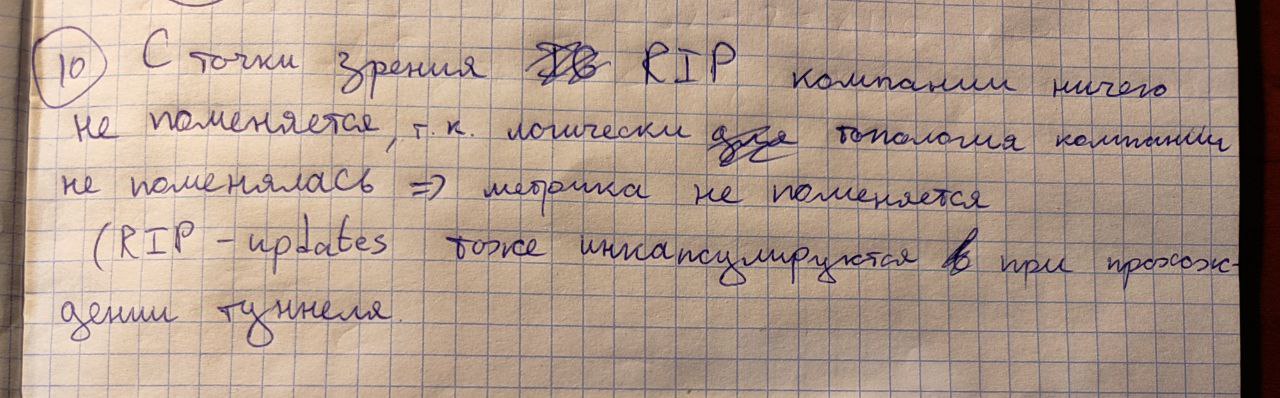 10 С точки зрения RIP компании ничего
не поменяется, т.к. логически топология компании
не поменялась => метрика не поменяется
(RIP - updates тоже инкапсулируются при прохож-
дении туннеля.